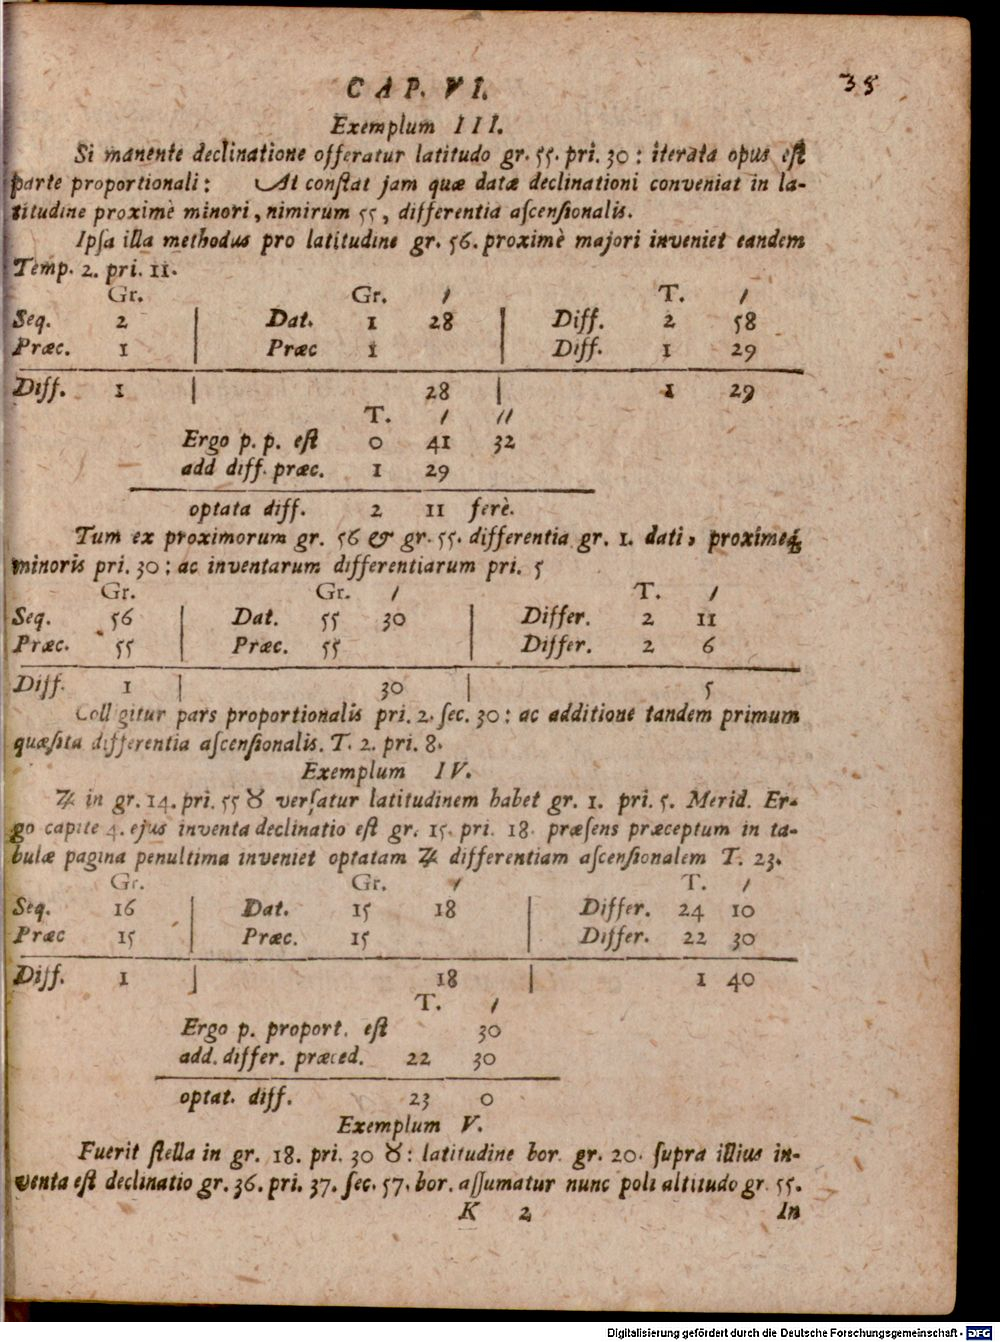 CAP. VI. 35
Exemplum III.
Si manente declinatione offeratur latitudo gr. 55. pri. 30 : iterata opus eſt
parte proportionali : At conſtat jam quæ datæ declinationi conveniat in la-
titudine proximè minori, nimirum 55, differentia aſcenſionalis.
Ipſa illa methodus pro latitudine gr. 56. proximè majori inveniet eandem
Temp. 2. pri. 11.
Gr. Gr. ′ T. ′
Seq. 2 | Dat. 1 28 | Diff. 2 58
Præc. 1 | Præc 1 | Diff. 1 29
Diff. 1 | 28 | 1 29
T. ′ ′′
Ergo p. p. eſt 0 41 32
add diff. præc. 1 29
optata diff. 2 11 ferè.
Tum ex proximorum gr. 56 & gr. 55. differentia gr. 1. dati, proximeq́;
minoris pri. 30 : ac inventarum differentiarum pri. 5
Gr. Gr. ′ T. ′
Seq. 56 | Dat. 55 30 | Differ. 2 11
Præc. 55 | Præc. 55 | Differ. 2 6
Diff. 1 | 30 | 5
Colligitur pars proportionalis pri. 2. ſec. 30 : ac additione tandem primum
quæſita differentia aſcenſionalis. T. 2. pri. 8.
Exemplum IV.
♃ in gr. 14. pri. 55 ♉ verſatur latitudinem habet gr. 1. pri. 5. Merid. Er-
go capite 4. ejus inventa declinatio eſt gr. 15. pri. 18. præſens præceptum in ta-
bulæ pagina penultima inveniet optatam ♃ differentiam aſcenſionalem T. 23.
Gr. Gr. ′ T. ′
Seq. 16 | Dat. 15 18 | Differ. 24 10
Præc 15 | Præc. 15 | Differ. 22 30
Diff. 1 | 18 | 1 40
T. ′
Ergo p. proport. eſt 30
add. differ. præced. 22 30
optat. diff. 23 0
Exemplum V.
Fuerit ſtella in gr. 18. pri. 30 ♉ : latitudine bor. gr. 20. ſupra illius in-
venta eſt declinatio gr. 36. pri. 37. ſec. 57. bor. aſſumatur nunc poli altitudo gr. 55.
K 2 In
Digitalisierung gefördert durch die Deutsche Forschungsgemeinschaft - DFG